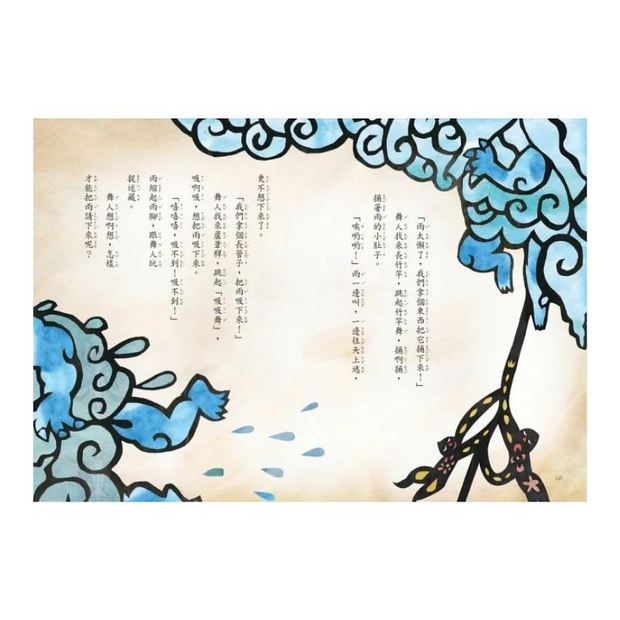 「雨太懶了，我們拿個東西把它捅下來！」
舞人找來長竹竿，跳起竹竿舞，捅啊捅，
捅著雨的小肚子。
「唉喲喲！」雨一邊叫，一邊往天上逃，
更不想下來了。
「我們拿個長管子，把雨吸下來！」
舞人找來蘆葦稈，跳起「吸吸舞」，
吸啊吸，想把雨吸下來。
「嘻嘻嘻，吸不到！吸不到！」
雨縮起雨腳，跟舞人玩
捉迷藏。
舞人想啊想，怎樣
才能把雨請下來呢？